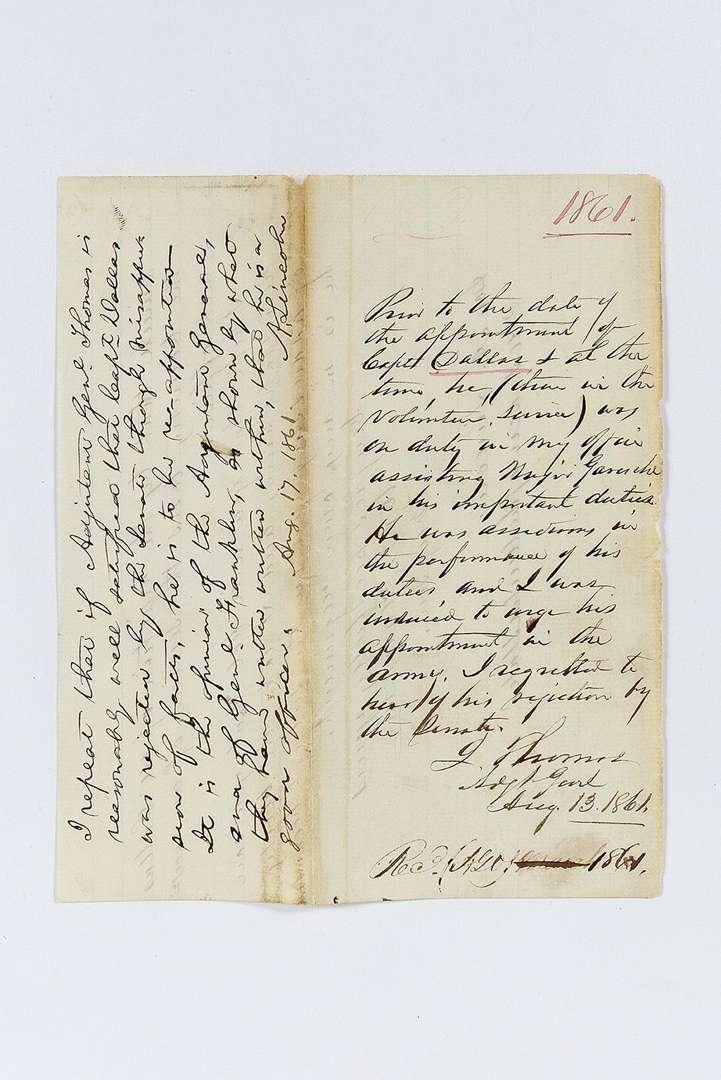 I repeat that if Adjutant Genl. Thomas is
reasonably well satisfied that Capt. Dallas
was rejected by the Senate through misappre-
sion of facts, he is to be re-appointed
It is the opinion of the Adjutant General,
and of Genl. Franklin, as shown by what
they have written within, that he is a
good officer.
Aug. 17. 1861. A. Lincoln
1861.
Prior to the date of
the appointment of
Capt. Dallas & at the
time, he, (then in the
Volunteer service) was
on duty in my office
assisting Major Garesche
in his important duties.
He was assiduous in
the performance of his
duties and I was
induced to urge his
appointment in the
army. I regretted to
hear of his rejection by
the Senate.
L. Thomas
Adjt. Genl
Aug. 13. 1861.
Recd. (A.G.O.) 1861.